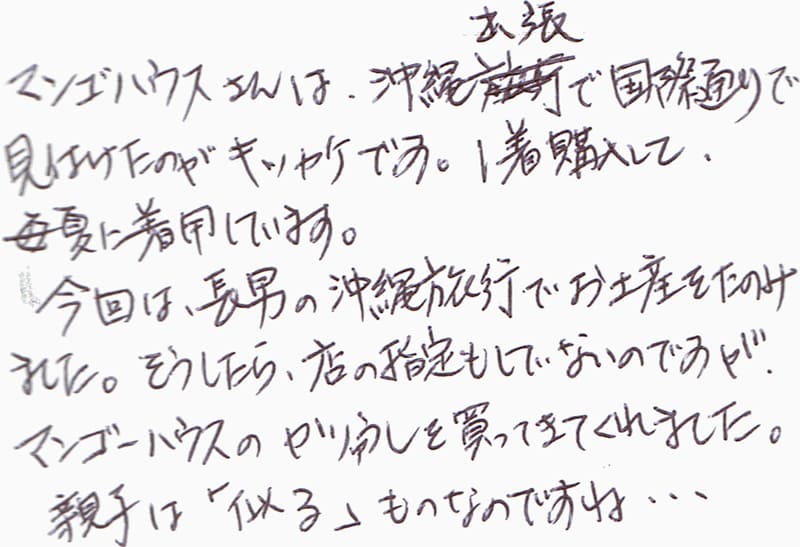 出張
マンゴハウスさんは、沖縄旅行で国際通りで
見つけたのがキッカケです。1着購入して、
毎夏に着用しています。
今回は、長男の沖縄旅行でお土産をたのみ
ました。そうしたら、店の指定もしてないのですが、
マンゴーハウスのかりゆしを買ってきてくれました。
親子は「似る」ものなのですね・・・